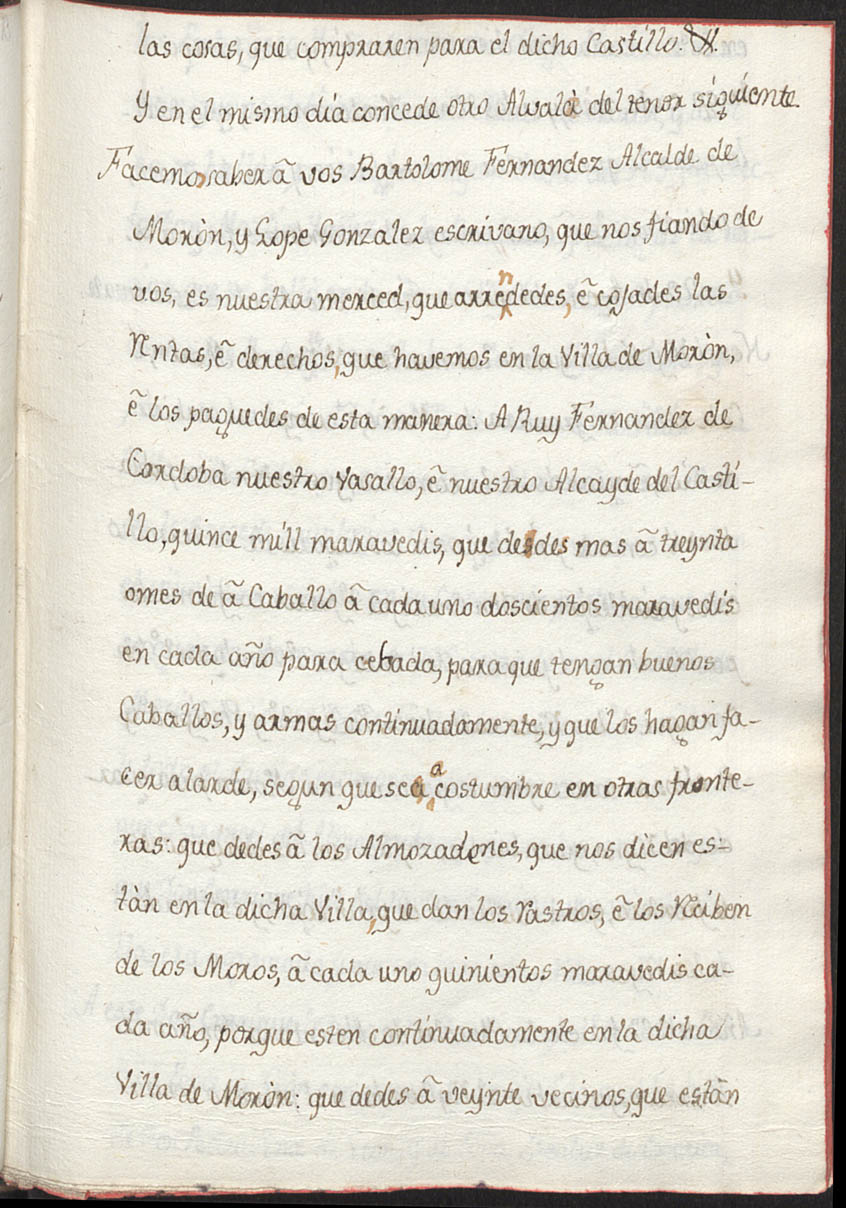 las cosas, que compraren para el dicho Castillo. &.
Y en el mismo día concede otro Alvalà del tenor siguiente.
Facemos saber ã vos Bartolome Fernandez Alcalde de
Moròn, y Lope Gonzalez escrivano, que nos fiando de
vos, es nuestra merced, que arrendedes, ẽ cojades las
Rentas, ẽ derechos, que havemos en la Villa de Moròn,
ẽ los paguedes de esta manera: A Ruy Fernandez de
Cordoba nuestro Vasallo, ẽ nuestro Alcayde del Casti-
llo, quince mill maravedis, que dedes mas ã treynta
omes de ã Caballo ã cada uno doscientos maravedis
en cada año para cebada, para que tengan buenos
Caballos, y armas continuadamente, y que los hagan fa-
cer alarde, segun que se acostumbre en otras fronte-
ras: que dedes ã los Almozadenes, que nos dicen es-
tàn en la dicha Villa, que dan los Rastros, ẽ los Reciben
de los Moros, ã cada uno quinientos maravedis ca-
da año, porque esten continuadamente en la dicha
Villa de Moròn: que dedes ã veynte vecinos, que estàn